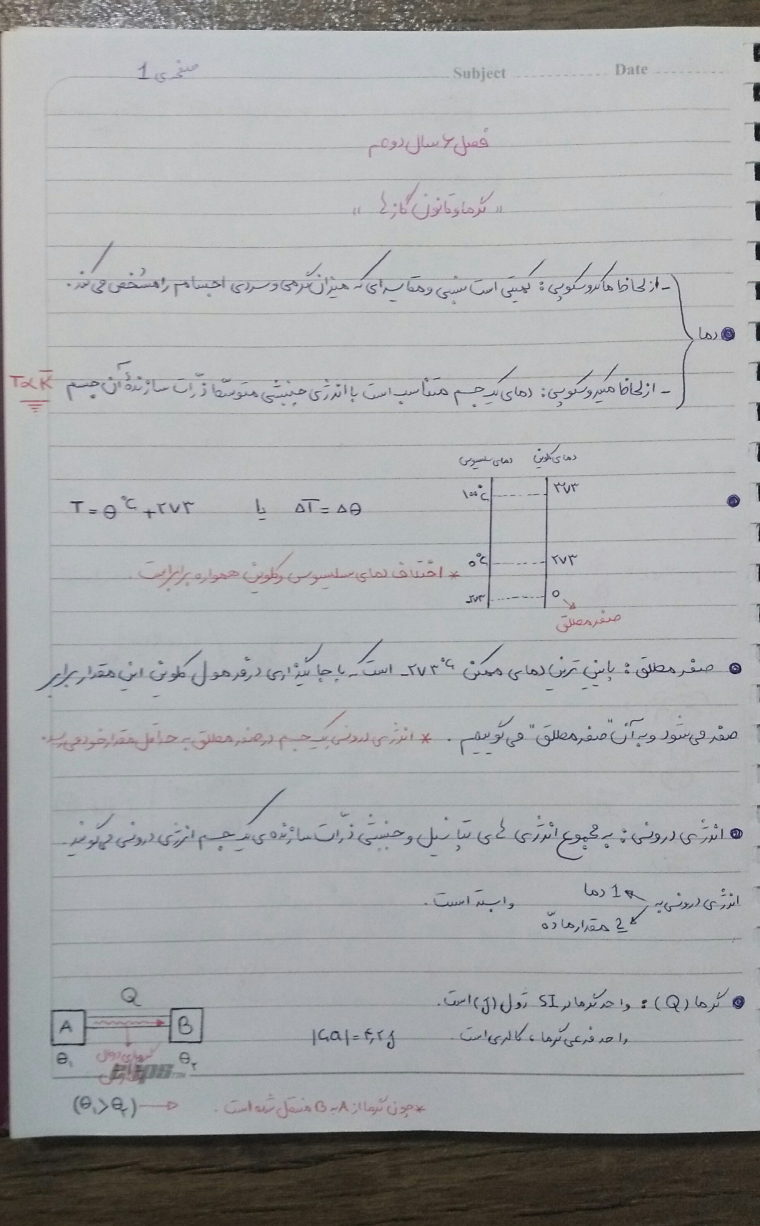 صفحه‌ی 1
Subject
Date
فصل ۶ سال دوم
"گرما و قانون گازها"
- از لحاظ ماکروسکوپی: کمیتی است نسبی و مقایسه‌ای که میزان گرمی و سردی اجسام را مشخص می‌کند.
دما
- از لحاظ میکروسکوپی: دمای یک جسم متناسب است با انرژی جنبشی متوسط ذرّات سازندهٔ آن جسم T∝K̅
دمای کلوین دمای سلسیوس
۱۰۰°C ۳۷۳
T = θ°C + ۲۷۳ یا ΔT = Δθ
۰°C ۲۷۳
* اختلاف دمای سلسیوس و کلوین همواره برابر است.
-۲۷۳ ۰
صفر مطلق
صفر مطلق: پایین ترین دمای ممکن -۲۷۳°C است. با جاگذاری در فرمول کلوین این مقدار برابر
صفر می‌شود و به آن "صفر مطلق" می‌گوییم. * انرژی درونی یک جسم در صفر مطلق به حداقل مقدار خود می‌رسد.
انرژی درونی: به مجموع انرژی های پتانسیل و جنبشی ذرّات سازنده‌ی یک جسم انرژی درونی می‌گویند.
انرژی درونی به 1 دما
2 مقدار مادّه
وابسته است.
گرما (Q): واحد گرما در SI ژول (J) است.
واحد فرعی گرما، کالری است. 1Cal = ۴٫۲ J
Q
A B
θ₁ θ₂
(θ₁>θ₂) * چون گرما از A به B منتقل شده است.